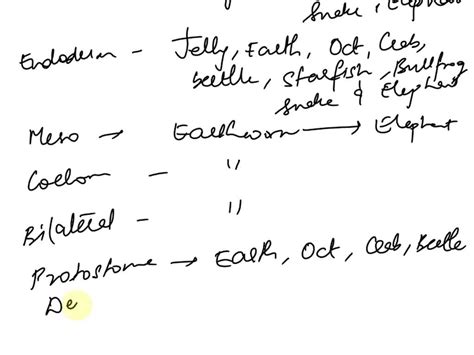 Snake, Elephant
Endoderm - Jelly, Earth, Oct, Crab,
beetle, Starfish, Bullfrog
Snake & Elephant
Meso → Earthworm → Elephant
Coelom - "
Bilateral - "
Protostome → Earth, Oct, Crab, Beetle
De